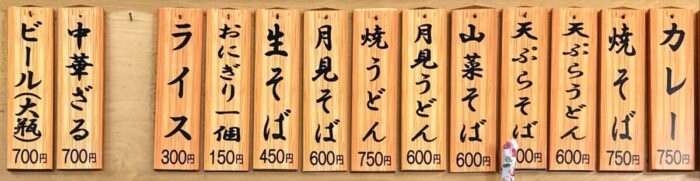 カレー
750円
焼そば
750円
天ぷらうどん
600円
天ぷらそば
00円
山菜そば
600円
月見うどん
600円
焼うどん
750円
月見そば
600円
生そば
450円
おにぎり一個
150円
ライス
300円
中華ざる
700円
ビール(大瓶)
700円